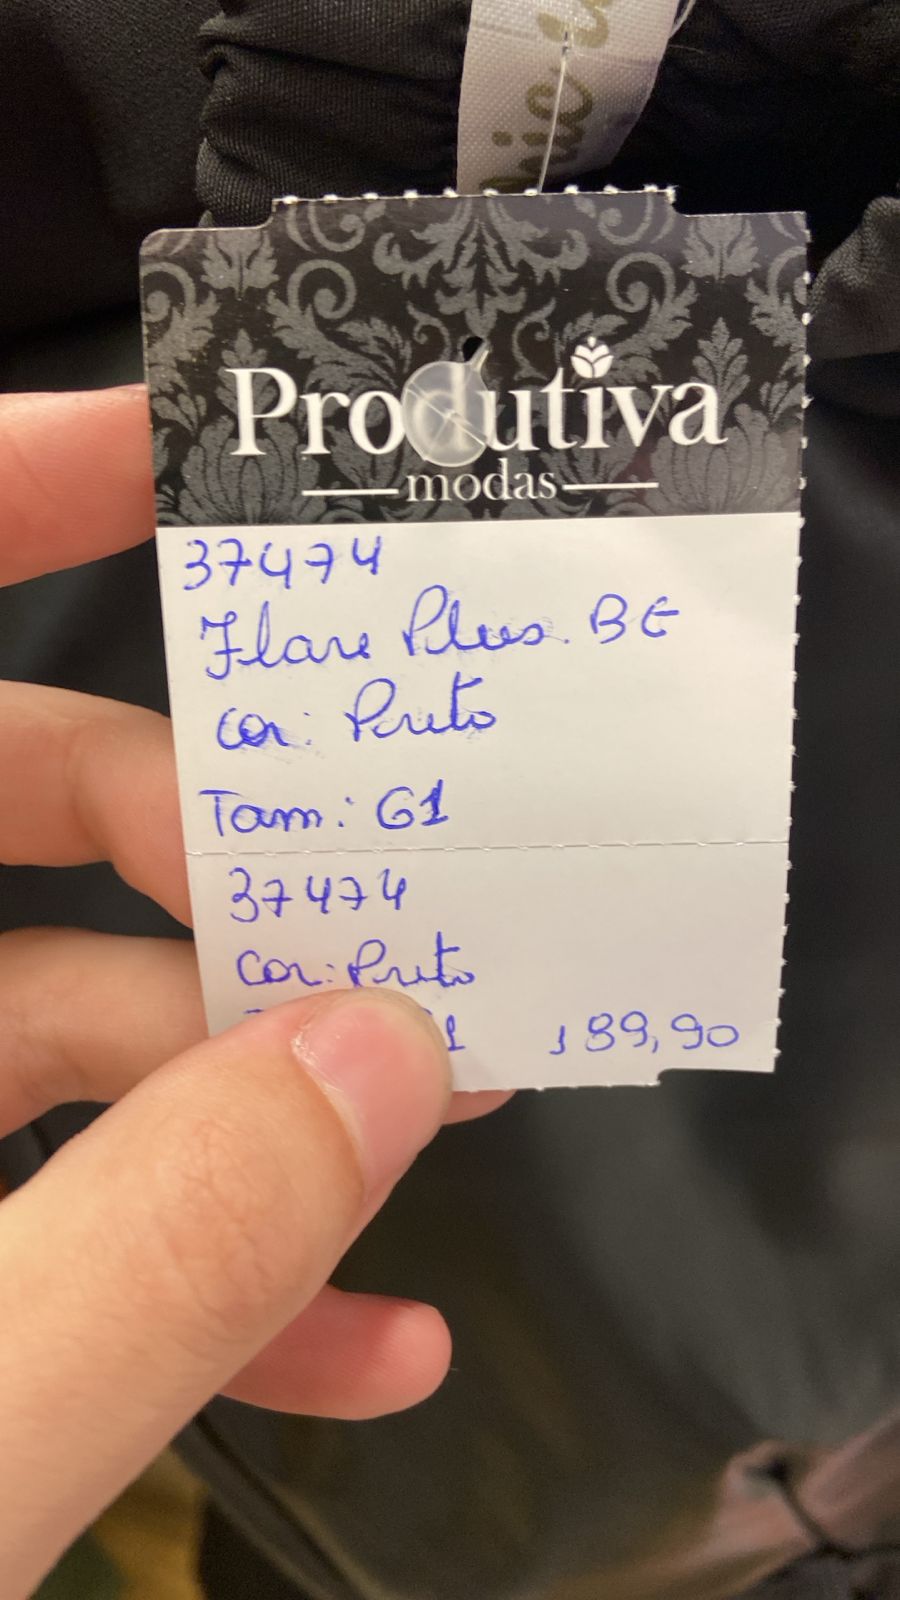 Produtiva
modas
37474
Flare Plus. BE
cor: Preto
Tam: G1
37474
Cor: Preto
189,90